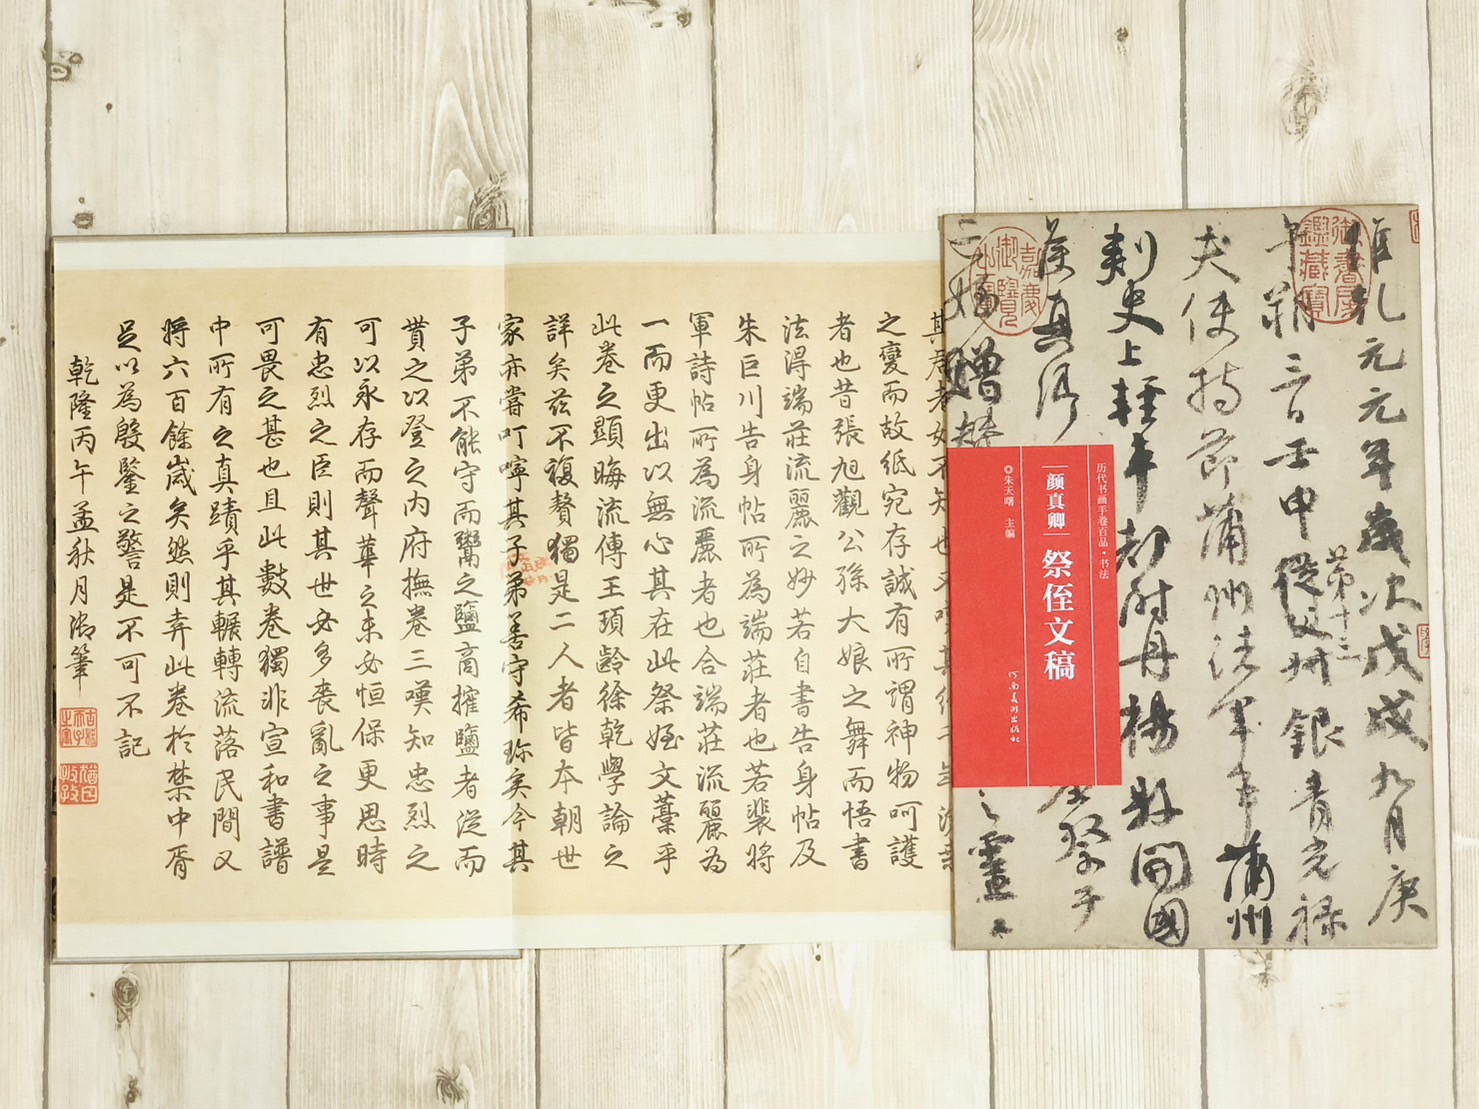 維乾元元年歲次戊戌九月庚
午朔三日壬申第十三
從父銀青光祿
夫使持節蒲州諸軍事蒲州
刺史上輕車都尉丹楊縣開國
侯真卿
祭于
贈贊
之靈
御書房鑑藏寶
嘉慶御覽之寶
历代书画手卷百品·书法
颜真卿
祭侄文稿
◎朱天曙 主编
河南美术出版社
之變而故紙宛存誠有所謂神物呵護
者也昔張旭觀公孫大娘之舞而悟書
法得端莊流麗之妙若自書告身帖及
朱巨川告身帖所為端莊者也若裴將
軍詩帖所為流麗者也合端莊流麗為
一而更出以無心其在此祭姪文藁乎
此卷之顯晦流傳王頊齡徐乾學論之
詳矣茲不複贅獨是二人者皆本朝世
家亦嘗叮嚀其子弟善守希珎矣今其
子弟不能守而鬻之鹽商搉鹽者從而
貰之以登之内府撫卷三嘆知忠烈之
可以永存而聲華之未必恒保更思時
有忠烈之臣則其世必多喪亂之事是
可畏之甚也且此數卷獨非宣和書譜
中所有之真蹟乎其輾轉流落民間又
將六百餘歲矣然則弆此卷於禁中胥
足以為殷鑒之警是不可不記
乾隆丙午孟秋月御筆
古稀天子之寶
猶日孜孜